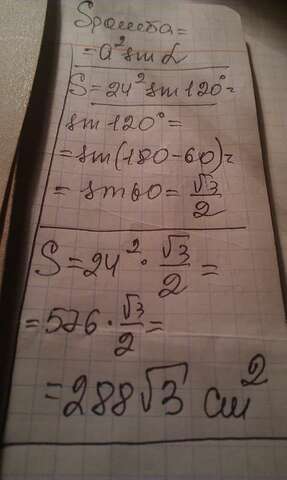 Sромба=
=a² sin α
S=24² sin120°=
sin 120°=
=sin(180-60)=
= sin60= √3/2
S=24² · √3/2 =
=576 · √3/2=
=288√3 см²